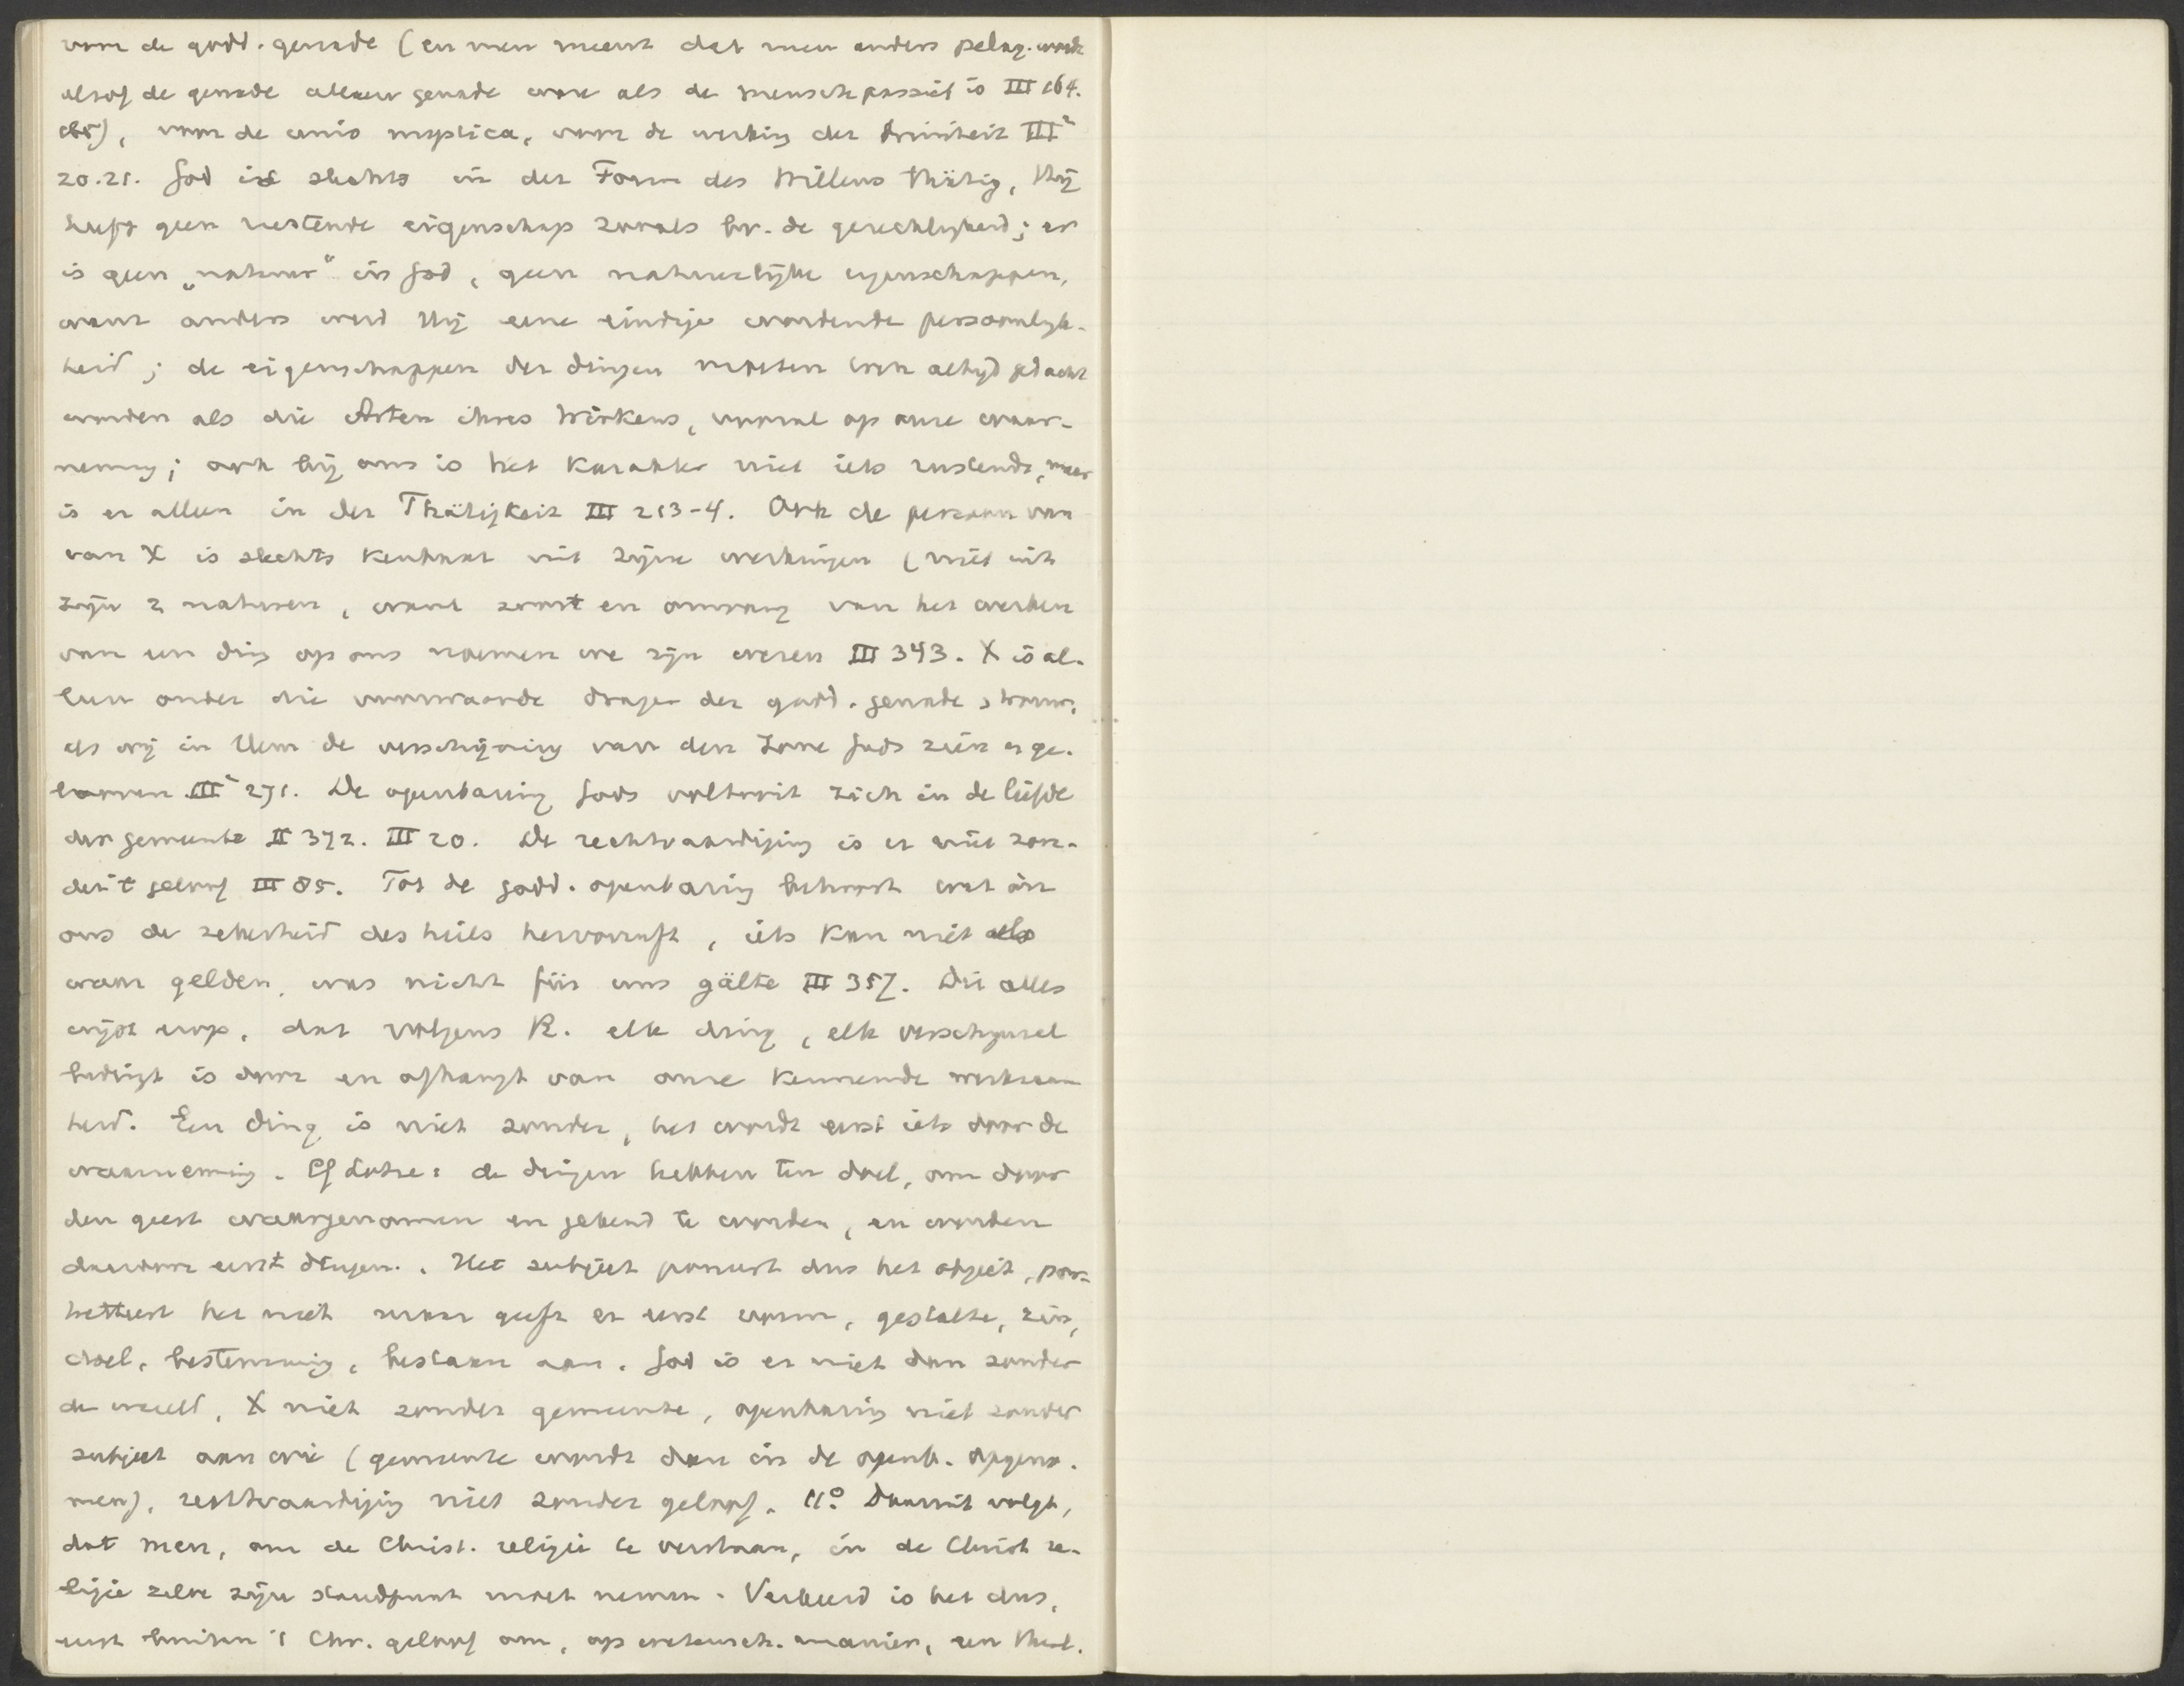 van de godd. genade (en men meent dat men anders pelag. wordt
alsof de genade alleen genade ware als de mensch passief is III 164.
165), van de unio mystica, van de werking der Triniteit III²
20.21. God is slechts in der Form des Willens thätig, Hij
heeft geen rustende eigenschap zooals bv. de gerechtigheid; er
is geen „natuur" in God, geen natuurlijke eigenschappen,
want anders werd Hij eene eindige wordende persoonlijk-
heid; de eigenschappen der dingen moeten ook altijd gedacht
worden als die Arten ihres Wirkens, vooral op onze waar-
neming; ook bij ons is het karakter niet iets rustends, maar
is er alleen in der Thätigkeit III 213-4. Ook de persoon van
van X is slechts kenbaar uit zijne werkingen (niet uit
zijn 2 naturen, want soort en omvang van het werken
van een ding op ons noemen we zijn wezen III 343. X is al-
leen onder die voorwaarde drager der godd. genade
als wij in Hem de verschijning van den Zone Gods zien en ge-
looven III² 271. De openbaring Gods voltooit zich in de liefde
der gemeente II 372. III 20. De rechtvaardiging is er niet zon-
der 't geloof III 85. Tot de godd. openbaring behoort wat in
ons de zekerheid des heils hervorruft, iets kan niet als
waar gelden, was nicht für uns gälte III 357. Dit alles
wijst erop, dat volgens R. elk ding, elk verschijnsel
bedingt is door en afhangt van onze kennende werkzaam
heid. Een ding is niet zonder, het wordt eerst iets door de
waarneming. Cf Lotze: de dingen hebben ten doel, om door
den geest waargenomen en gekend te worden, en worden
daardoor eerst dingen. Het subject poneert dus het object,
het niet maar geeft er eerst vorm, gestalte, zin,
doel, bestemming, bestaan aan. God is er niet dan zonder
de wereld, X niet zonder gemeente, openbaring niet zonder
subject aan wie (gemeente wordt dan in de openb. opgeno-
men), rechtvaardiging niet zonder geloof. 11º Daaruit volgt,
dat men, om de Christ. religie te verstaan, in de Christ re-
ligie zelve zijn standpunt moet nemen. Verkeerd is het dus,
eerst buiten 't Chr. geloof om, op wetensch. manier, een theol.